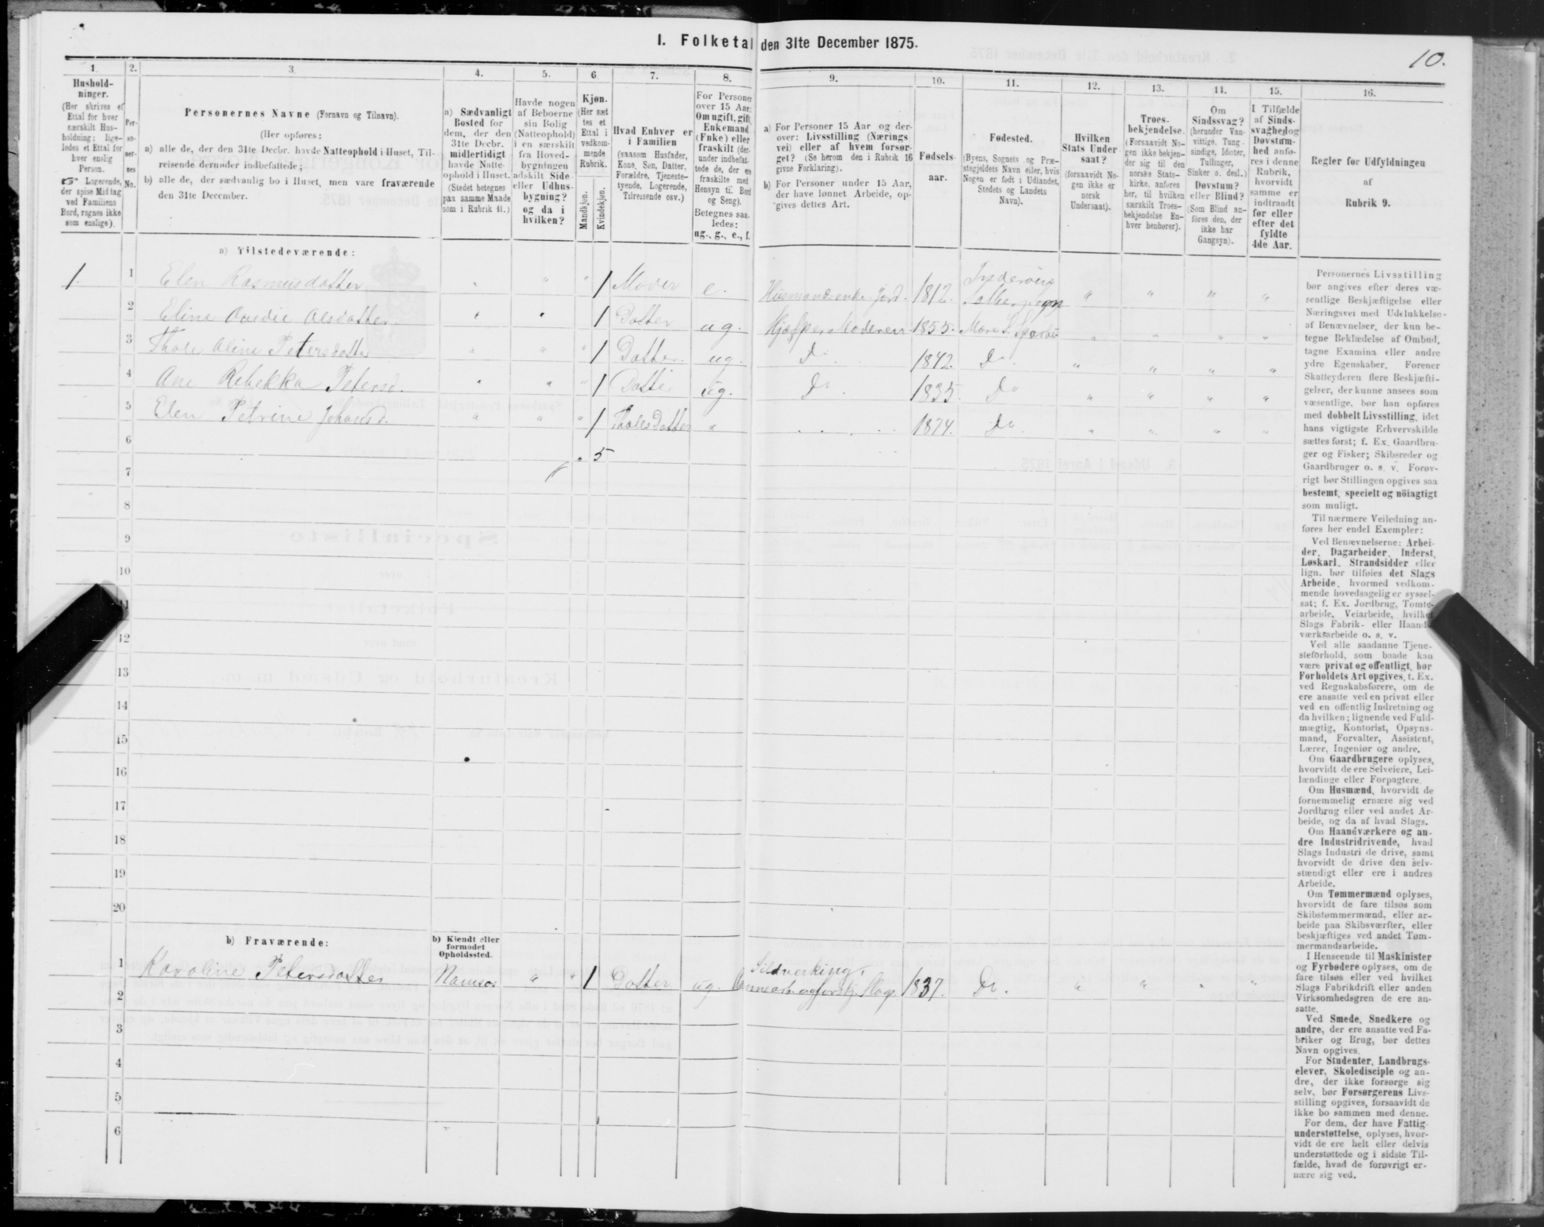 I. Folketal den 31te December 1875.
10.
1.
2.
3.
4.
5.
6.
7.
8.
9.
10.
11.
12.
13.
14.
15.
16.
Hushold-
ninger.
(Her skrives et
Ettal for hver
særskilt Hus-
holdning; lige-
ledes et Ettal for
hver enslig
Person.
☞ Logerende,
der spise Middag
ved Familiens
Bord, regnes ikke
som enslige).
Per-
so-
ner-
nes
No.
Personernes Navne (Fornavn og Tilnavn).
(Her opføres:
a) alle de, der den 31te Decbr. havde Natteophold i Huset, Til-
reisende derunder indbefattede;
b) alle de, der sædvanlig bo i Huset, men vare fraværende
den 31te December.
a) Sædvanligt
Bosted for
dem, der den
31te Decbr.
midlertidigt
havde Natte-
ophold i Huset.
(Stedet betegnes
paa samme Maade
som i Rubrik 11.)
Havde nogen
af Beboerne
sin Bolig
(Natteophold)
i en særskilt
fra Hoved-
bygningen
adskilt Side-
eller Udhus-
bygning?
og da i
hvilken?
Kjøn.
(Her sæt-
tes et
Ettal i
vedkom-
mende
Rubrik.
Mandkjøn.
Kvindekjøn.
Hvad Enhver er
i Familien
(saasom Husfader,
Kone, Søn, Datter,
Forældre, Tjeneste-
tyende, Logerende,
Tilreisende osv.)
For Personer
over 15 Aar:
Om ugift, gift,
Enkemand
(Enke) eller
fraskilt (der-
under indbefat-
tede de, der ere
fraskilte med
Hensyn til Bord
og Seng).
Betegnes saa-
ledes:
ug., g., e., f.
a) For Personer 15 Aar og der-
over: Livsstilling (Nærings-
vei) eller af hvem forsør-
get? (Se herom den i Rubrik 16
givne Forklaring).
b) For Personer under 15 Aar,
der have lønnet Arbeide, op-
gives dettes Art.
Fødsels-
aar.
Fødested.
(Byens, Sognets og Præ-
stegjeldets Navn eller, hvis
Nogen er født i Udlandet,
Stedets og Landets
Navn).
Hvilken
Stats Under-
saat?
(forsaavidt No-
gen ikke er
norsk
Undersaat).
Troes-
bekjendelse.
(Forsaavidt No-
gen ikke bekjen-
der sig til den
norske Stats-
kirke, anføres
her, til hvilken
særskilt Troes-
bekjendelse En-
hver henhører).
Om
Sindssvag?
(herunder Van-
vittige, Tung-
sindige, Idioter,
Tullinger,
Sinker o. desl.)
Døvstum?
eller Blind?
(Som Blind an-
føres den, der
ikke har
Gangsyn).
I Tilfælde
af Sinds-
svaghed og
Døvstum-
hed anfø-
res i denne
Rubrik,
hvorvidt
samme er
indtraadt
før eller
efter det
fyldte
4de Aar.
Regler for Udfyldningen
af
Rubrik 9.
a) Tilstedeværende:
1. 1 Elen Rasmusdatter " " " 1 Moder e. Husmandsenke Jord. 1812. " " " "
2 Eline Olsdatter " " 1 Datter ug. Hjælper Moderen 1855. " " " "
3 Thale Aline Petersdatter " " " 1 Datter ug. Do. 1842. Do " " " "
4 Ane Rebekka Petersd. " " " 1 Datter ug. Do. 1835. Do " " " "
5 Elen Petrine Johansd. " " " 1 Thales Datter " 1874. Do. " " " "
6
7
5
8
9
10
11
12
13
14
15
16
17
18
19
20
b) Fraværende:
b) Kjendt eller
formodet
Opholdssted.
1 Karoline Petersdatter Namsos " " 1 Datter ug. 1837. Do. " " " "
2
3
4
5
6
Personernes Livsstilling
bør angives efter deres væ-
sentlige Beskjæftigelse eller
Næringsvei med Udelukkelse
af Benævnelser, der kun be-
tegne Beklædelse af Ombud,
tagne Examina eller andre
ydre Egenskaber. Forener
Skatteyderen flere Beskjæfti-
gelser, der kunne ansees som
væsentlige, bør han opføres
med dobbelt Livsstilling, idet
hans vigtigste Erhvervskilde
sættes først; f. Ex. Gaardbru-
ger og Fisker; Skibsreder og
Gaardbruger o. s. v. Forøv-
rigt bør Stillingen opgives saa
bestemt, specielt og nøiagtigt
som muligt.
Til nærmere Veiledning an-
føres her endel Exempler:
Ved Benævnelserne: Arbei-
der, Dagarbeider, Inderst,
Løskarl, Strandsidder eller
lign. bør tilføies det Slags
Arbeide, hvormed vedkom-
mende hovedsagelig er syssel-
sat; f. Ex. Jordbrug, Tomte-
arbeide, Veiarbeide, hvilket
Slags Fabrik- eller Haand-
værksarbeide o. s. v.
Ved alle saadanne Tjene-
steforhold, som baade kan
være privat og offentligt, bør
Forholdets Art opgives, t. Ex.
ved Regnskabsførere, om de
ere ansatte ved en privat eller
ved en offentlig Indretning og
da hvilken; lignende ved Fuld-
mægtig, Kontorist, Opsyns-
mand, Forvalter, Assistent,
Lærer, Ingeniør og andre.
Om Gaardbrugere oplyses,
hvorvidt de ere Selveiere, Lei-
lændinge eller Forpagtere.
Om Husmænd, hvorvidt de
fornemmelig ernære sig ved
Jordbrug eller ved andet Ar-
beide, og da af hvad Slags.
Om Haandværkere og an-
dre Industridrivende, hvad
Slags Industri de drive, samt
hvorvidt de drive den selv-
stændigt eller ere i andres
Arbeide.
Om Tømmermænd oplyses,
hvorvidt de fare tilsøs som
Skibstømmermænd, eller ar-
beide paa Skibsværfter, eller
beskjæftiges ved andet Tøm-
mermandsarbeide.
I Henseende til Maskinister
og Fyrbødere oplyses, om de
fare tilsøs eller ved hvilket
Slags Fabrikdrift eller anden
Virksomhedsgren de ere an-
satte.
Ved Smede, Snedkere og
andre, der ere ansatte ved Fa-
briker og Brug, bør dettes
Navn opgives.
For Studenter, Landbrugs-
elever, Skoledisciple og an-
dre, der ikke forsørge sig
selv, bør Forsørgerens Livs-
stilling opgives, forsaavidt de
ikke bo sammen med denne.
For dem, der have Fattig-
understøttelse, oplyses, hvor-
vidt de ere helt eller delvis
understøttede og i sidste Til-
fælde, hvad de forøvrigt er-
nære sig ved.